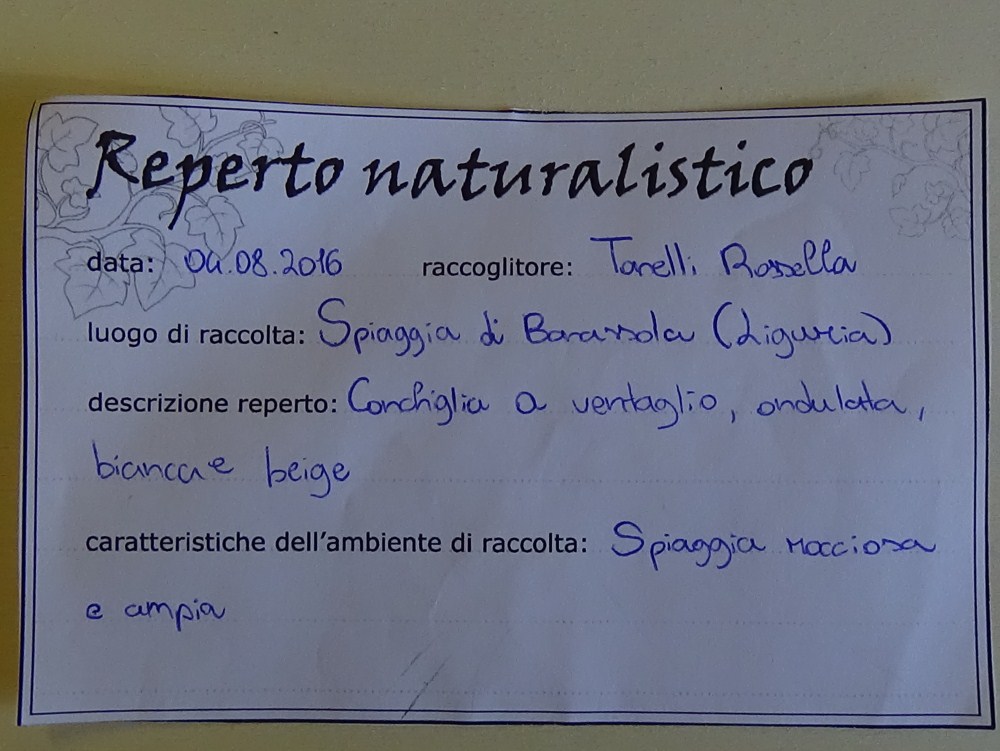 Reperto naturalistico
data: 04.08.2016 raccoglitore: Tanelli Rossella
luogo di raccolta: Spiaggia di Barassola (Liguria)
descrizione reperto: Conchiglia a ventaglio, ondulata,
bianca e beige
caratteristiche dell'ambiente di raccolta: Spiaggia rocciosa
e ampia